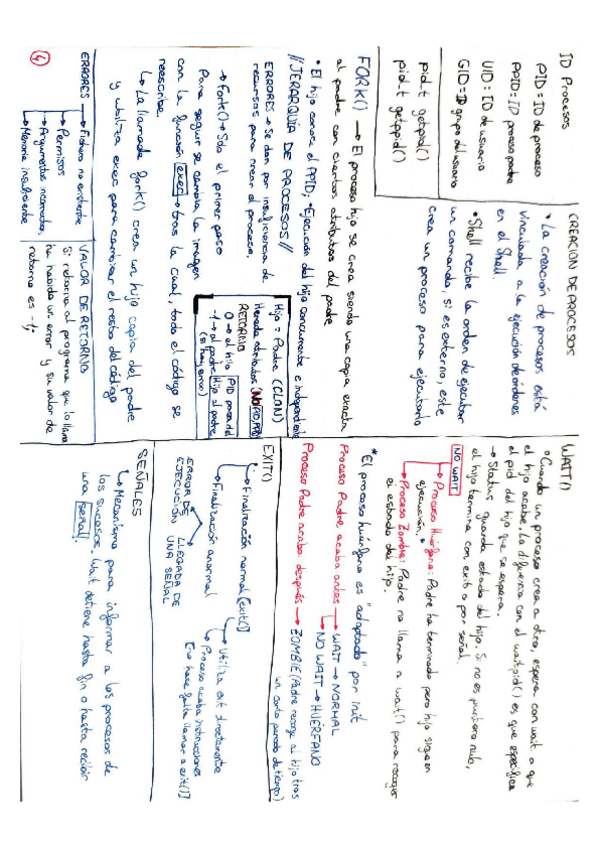 ID Procesos
PID = ID de proceso
PPID = ID proceso padre
UID = ID de usuario
GID = ID grupo del usuario
pid_t getpid()
pid_t getppid()
CREACION DE PROCESOS
• La creación de procesos está
vinculada a la ejecución de órdenes
en el Shell.
• Shell recibe la orden de ejecutar
un comando, si es externo, este
crea un proceso para ejecutarlo
FORK() → El proceso hijo se crea siendo una copia exacta
al padre con ciertos atributos del padre
• El hijo conoce el PPID; • Ejecución del hijo concurrente e independiente
// JERARQUÍA DE PROCESOS //
ERRORES → Se dan por insuficiencia de
recursos para crear el proceso.
→ Fork() → Solo el primer paso
Para seguir se cambia la imagen
con la función exec → tras la cual, todo el código se
reescribe.
↳ La llamada fork() crea un hijo copia del padre
y utiliza exec para cambiar el resto del código
Hijo = Padre (CLON)
Hereda atributos (NO PID, PPID)
RETORNO
0 → el hijo
-1 → al padre
(si hay error)
PID pasa del
Hijo al padre
ERRORES → Fichero no existente
→ Permisos
→ Argumentos incorrectos
→ Memoria insuficiente
VALOR DE RETORNO
Si retorna al programa que lo llama
ha habido un error y su valor de
retorno es -1;
4
WAIT()
• Cuando un proceso crea a otro, espera con wait a que
el hijo acabe. La diferencia con el waitpid() es que especifica
el pid del hijo que se espera.
→ Status guarda estado del hijo, si no es puntero nulo,
el hijo termina con exit o por señal.
NO WAIT
→ Proceso Huérfano: Padre ha terminado pero hijo sigue en
ejecución.*
→ Proceso Zombie: Padre no llama a wait() para recoger
el estado del hijo.
*El proceso huérfano es "adoptado" por init
Proceso Padre acaba antes → WAIT → NORMAL
NO WAIT → HUÉRFANO
Proceso Padre acaba después → ZOMBIE (Padre recoge al hijo tras
un corto periodo de tiempo)
EXIT()
→ Finalización normal [exit()]
→ Utiliza exit directamente
→ Proceso acaba instrucciones
[→ hace falta llamar a exit()]
→ Finalización anormal
ERROR DE
EJECUCIÓN
LLEGADA DE
UNA SEÑAL
SEÑALES
↳ Mecanismo para informar a los procesos de
los sucesos. Wait detiene hasta fin o hasta recibir
una señal.